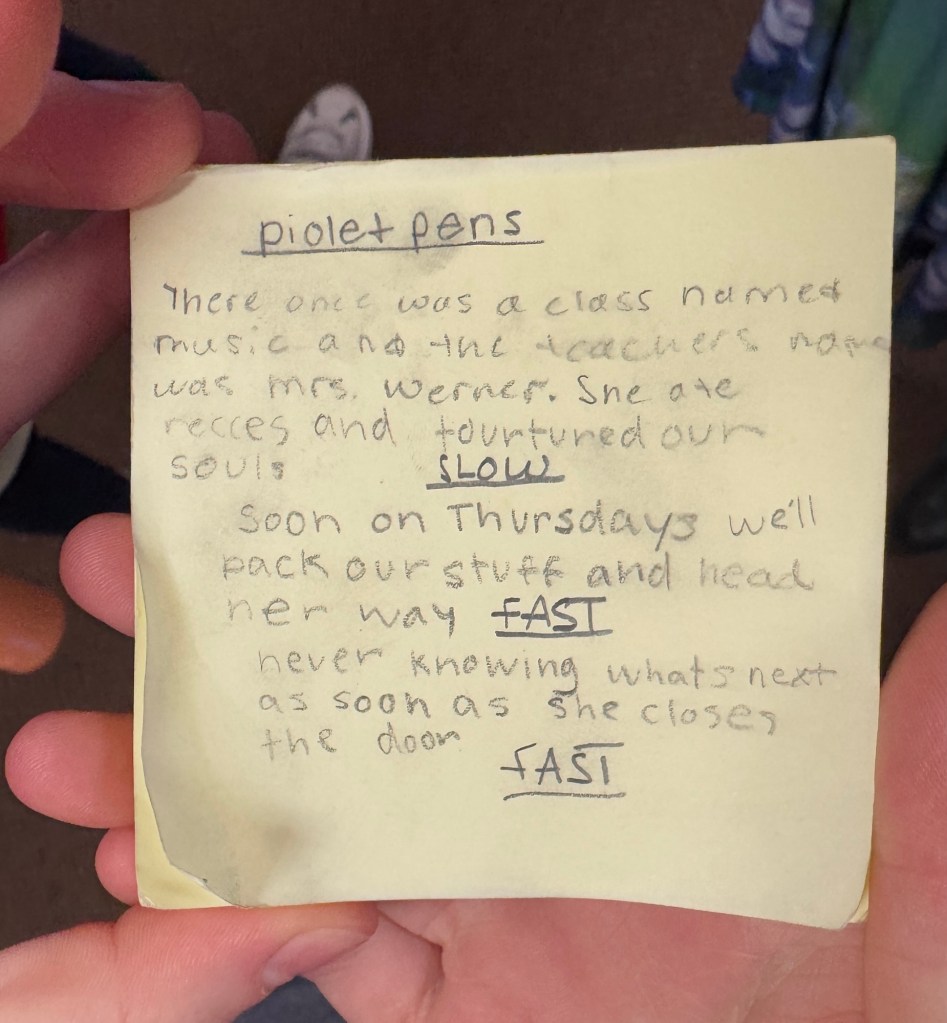 piolet pens
There once was a class named
music and the teachers name
was mrs. werner. She ate
recces and tourtured our
souls SLOW
Soon on Thursdays we'll
pack our stuff and head
her way FAST
never knowing whats next
as soon as she closes
the door
FAST